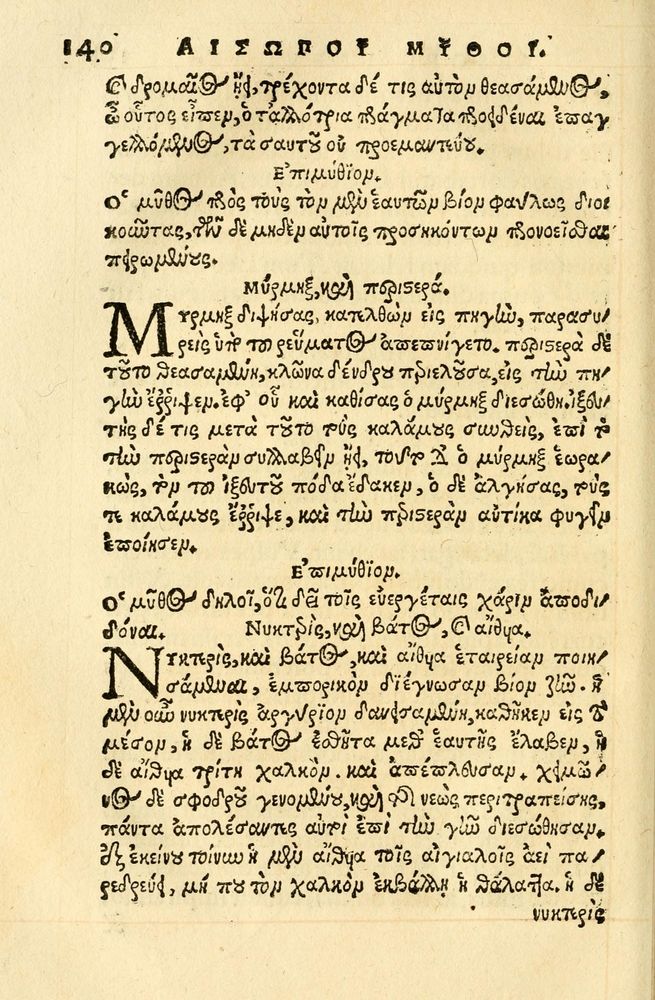 140 ΑΙΣΩΠΟΥ ΜΥΘΟΙ.
δρομαῖος ᾔει, τρέχοντα δέ τις αὐτὸν θεασάμενος,
ὦ οὗτος εἶπεν, ὁ τἀλλότρια πράγματα προειδέναι ἐπαγ
γελλόμενος, τὰ σαυτοῦ οὐ προεμαντεύου.
Ἐπιμύθιον.
Ὁ μῦθος πρὸς τοὺς τὸν μὲν ἑαυτῶν βίον φαύλως διοι
κοῦντας, τῶν δὲ μηδὲν αὐτοῖς προσηκόντων προνοεῖσθαι
πειρωμένους.
Μύρμηξ, καὶ περιστερά.
Μύρμηξ διψήσας, κατελθὼν εἰς πηγὴν, παρασυ/
ρεὶς ὑπὸ τοῦ ῥεύματος ἀπεπνίγετο. περιστερὰ δὲ
τοῦτο θεασαμένη, κλῶνα δένδρου περιελοῦσα, εἰς τὴν πη/
γὴν ἔῤῥιψεν. ἐφ' οὗ καὶ καθίσας ὁ μύρμηξ διεσώθη. ἰξευ/
τὴς δέ τις μετὰ τοῦτο τοὺς καλάμους συνθεὶς, ἐπὶ τὸ
τὴν περιστερὰν συλλαβεῖν ᾔει, τοῦτο δ' ὁ μύρμηξ ἑωρα/
κὼς, τὸν τοῦ ἰξευτοῦ πόδα ἔδακεν, ὁ δὲ ἀλγήσας, τούς
τε καλάμους ἔῤῥιψε, καὶ τὴν περιστερὰν αὐτίκα φυγεῖν
ἐποίησεν.
Ἐπιμύθιον.
Ὁ μῦθος δηλοῖ, ὅτι δεῖ τοῖς εὐεργέταις χάριν ἀποδι/
δόναι. Νυκτερὶς, καὶ βάτος, καὶ αἴθυια.
Νυκτερὶς, καὶ βάτος, καὶ αἴθυια ἑταιρείαν ποιη/
σάμεναι, ἐμπορικὸν διέγνωσαν βίον ζῆν. ἡ
μὲν οὖν νυκτερὶς ἀργύριον δανεισαμένη, καθῆκεν εἰς τὸ
μέσον, ἡ δὲ βάτος ἐσθῆτα μεθ' ἑαυτῆς ἔλαβεν, ἡ
δὲ αἴθυια τρίτη χαλκὸν. καὶ ἀπέπλευσαν. χειμῶ/
νος δὲ σφοδροῦ γενομένου, καὶ τῆς νεὼς περιτραπείσης,
πάντα ἀπολέσαντες αὐτοὶ ἐπὶ τὴν γῆν διεσώθησαν.
ἐξ ἐκείνου τοίνυν ἡ μὲν αἴθυια τοῖς αἰγιαλοῖς ἀεὶ πα/
ρεδρεύει, μή που τὸν χαλκὸν ἐκβάλλῃ ἡ θάλαττα. ἡ δὲ
νυκτερὶς